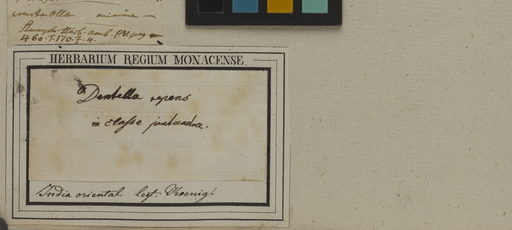 minima
460. T. 170. F. 4.
HERBARIUM REGIUM MONACENSE.
Dentella repens
in classe pentandra.
India oriental. legt. Koenig.